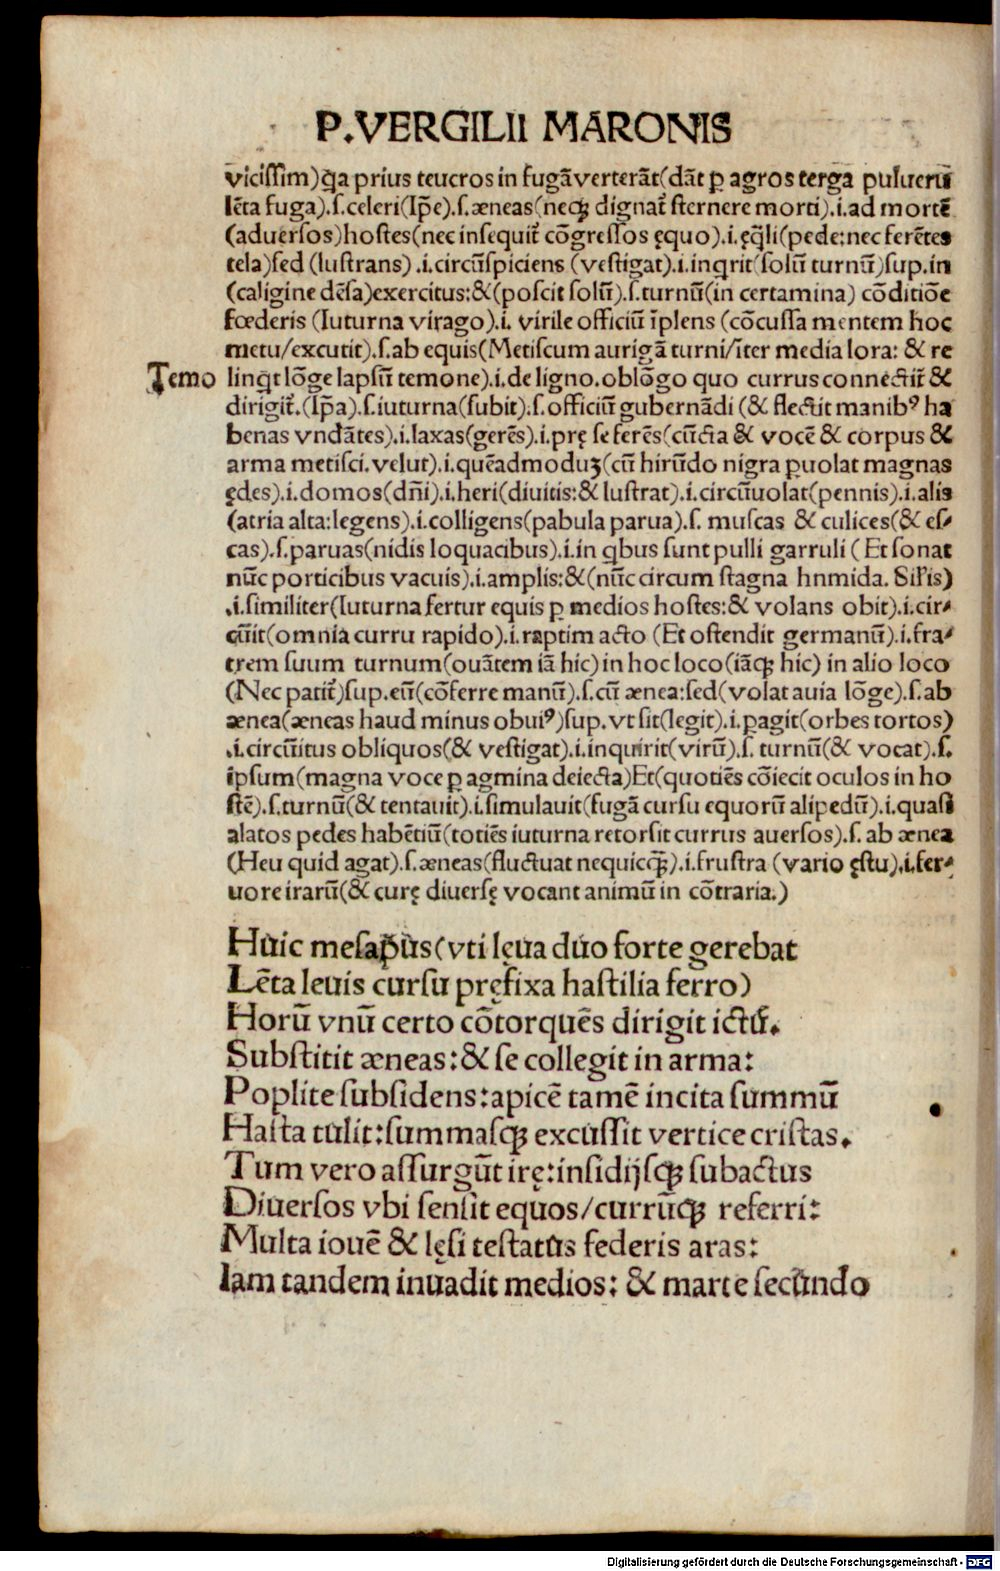 P.VERGILII MARONIS
vicissim)q̃a prius teucros in fugã verterãt(dãt ꝑ agros terga pulueru᷈
lẽta fuga).ſ.celeri(Ip̃e).ſ.æneas(neqꝫ dignat᷑ ſternere morti).i.ad mortẽ
(aduerſos)hoſtes(nec inſequit᷑ cõgreſſos ęquo).i.ęq̃li(pede:nec ferẽtes
tela)ſed (luſtrans).i.circũſpiciens (veſtigat).i.inqrit(ſolũ turnũ)ſup.in
(caligine dẽſa)exercitus:&(poſcit ſolũ).ſ.turnũ(in certamina) cõditiõe
fœderis (Iuturna virago).i. virile officiũ ĩplens (cõcuſſa mentem hoc
metu/excutit).ſ.ab equis(Metiſcum aurigã turni/iter media lora: & re
Temo linqt lõge lapſũ temone).i.de ligno.oblõgo quo currus connectit᷑ &
dirigit᷑.(Ip̃a).ſ.iuturna(ſubit).ſ.officiũ gubernãdi (& flectit manibꝰ ha
benas vndãtes).i.laxas(gerẽs).i.prę ſe ferẽs(cũcta & vocẽ & corpus &
arma metiſci.velut).i.quẽadmoduꝫ(cũ hirũdo nigra ꝑuolat magnas
ędes).i.domos(dñi).i.heri(diuitis:& luſtrat).i.circũuolat(pennis).i.alis
(atria alta:legens).i.colligens(pabula parua).ſ. muſcas & culices(& eſ⸗
cas).ſ.paruas(nidis loquacibus).i.in qbus ſunt pulli garruli ( Et ſonat
nũc porticibus vacuis).i.amplis:&(nũc circum ſtagna hnmida. Sil᷑is)
.i.ſimiliter(Iuturna fertur equis ꝑ medios hoſtes:& volans obit).i.cir⸗
cũit(omnia curru rapido).i.raptim acto (Et oſtendit germanũ).i.fra⸗
trem ſuum turnum(ouãtem iã hic)in hoc loco(iãqꝫ hic) in alio loco
(Nec patit᷑)ſup.eũ(cõferre manũ).ſ.cũ ænea:ſed(volat auia lõge).ſ.ab
ænea(æneas haud minus obuiꝰ)ſup.vt ſit(legit).i.ꝑagit(orbes tortos)
.i.circũitus obliquos(& veſtigat).i.inquirit(virũ).ſ. turnũ(& vocat).ſ.
ipſum(magna voce ꝑ agmina deiecta)Et(quotiẽs cõiecit oculos in ho
ſtẽ).ſ.turnũ(& tentauit).i.ſimulauit(fugã curſu equorũ alipedũ).i.quaſi
alatos pedes habẽtiũ(totiẽs iuturna retorſit currus auerſos).ſ. ab ænea
(Heu quid agat).ſ.æneas(fluctuat nequicqꝫ̃).i.fruſtra (vario ęſtu).i.fer⸗
uore irarũ(& curę diuerſę vocant animũ in cõtraria.)
Huic meſapus(vti lęua duo forte gerebat
Lẽta leuis curſu pręfixa haſtilia ferro)
Horũ vnũ certo cõtorquẽs dirigit ictũ.
Subſtitit æneas:& ſe collegit in arma:
Poplite ſubſidens:apicẽ tamẽ incita ſummũ
Haſta tulit:ſummaſqꝫ excuſſit vertice criſtas.
Tum vero aſſurgũt irę:inſidijſqꝫ ſubactus
Diuerſos vbi ſenſit equos/currũqꝫ referri:
Multa iouẽ & lęſi teſtatus federis aras:
Iam tandem inuadit medios: & marte ſecũndo
Digitalisierung gefördert durch die Deutsche Forschungsgemeinschaft - DFG